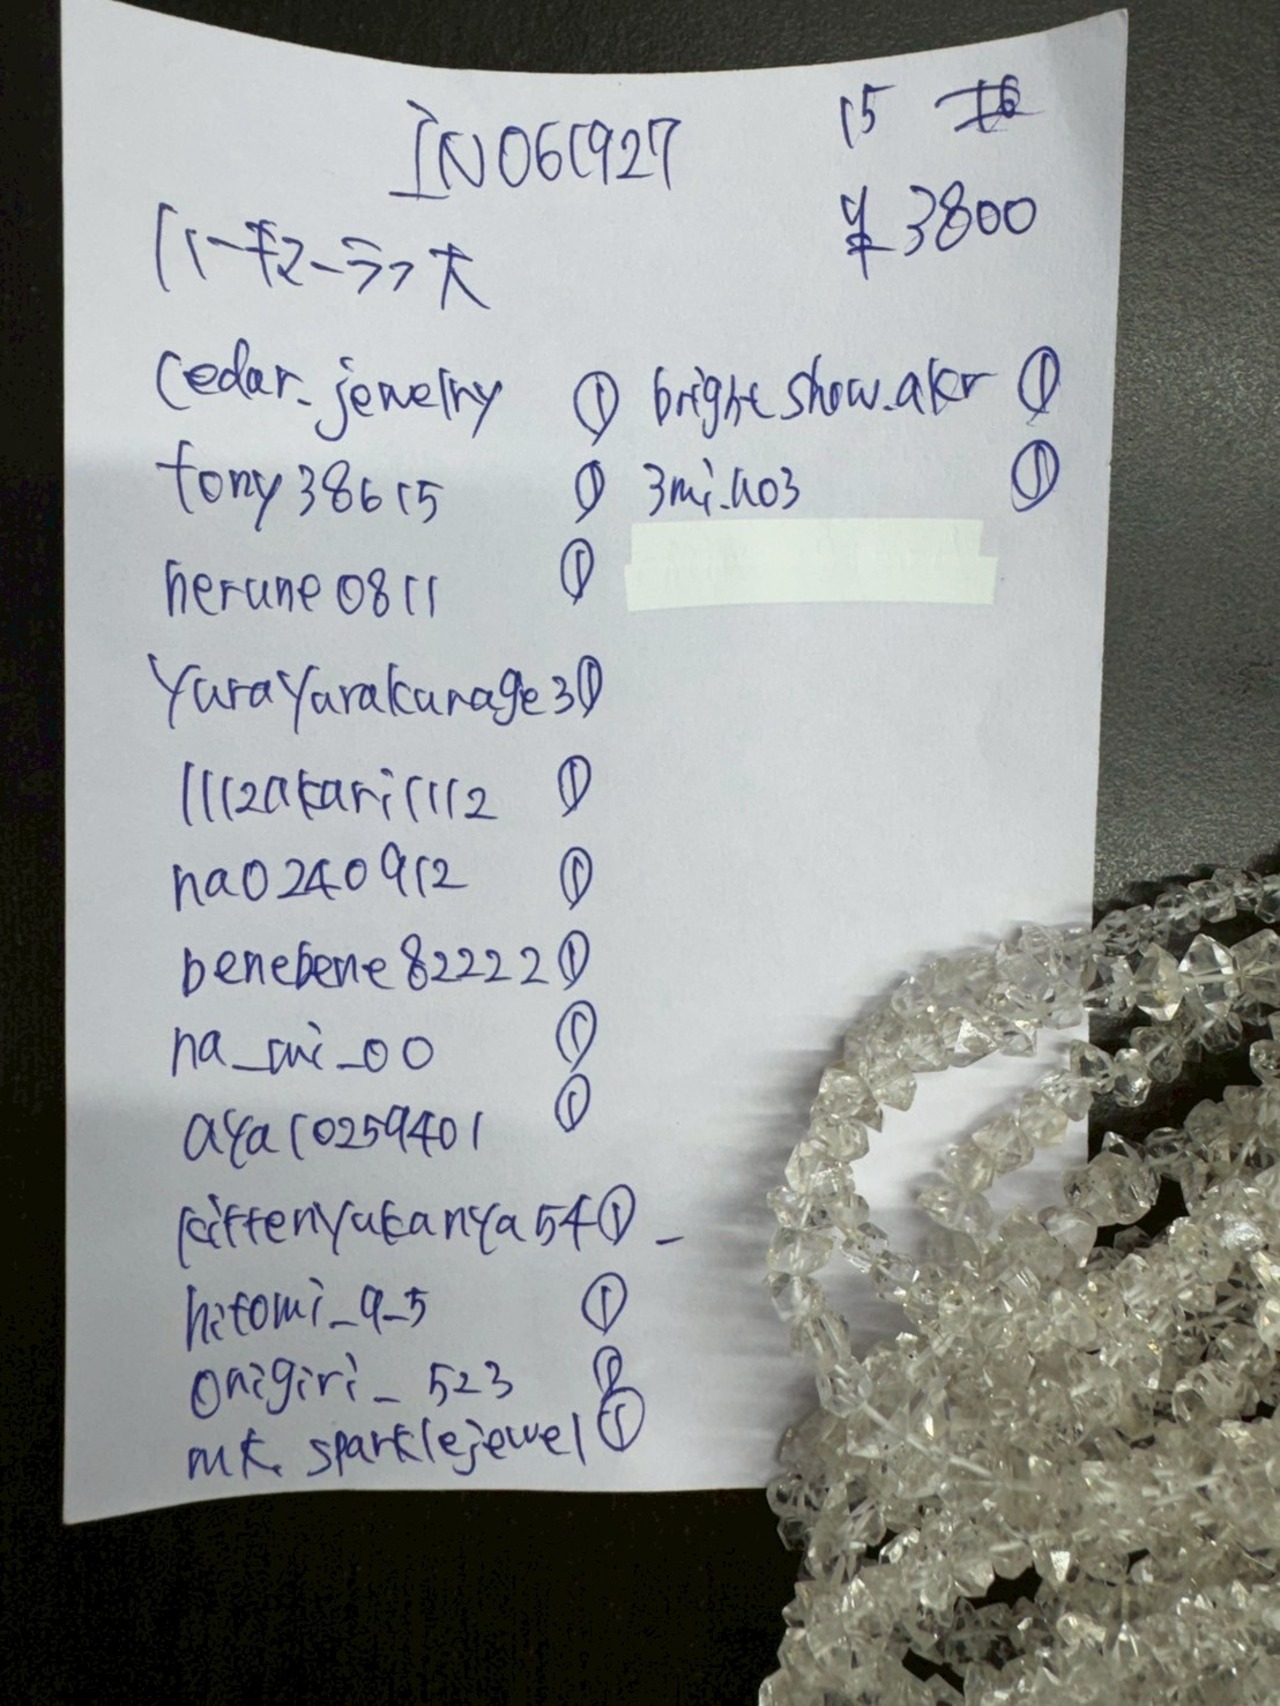 IN061927
15 16
¥3800
ハーキマーラフ大
cedar_jewelry ①
tony38615 ①
herune0811 ①
yurayurakurage3 ①
1112akari1112 ①
na0240912 ①
benebene82222 ①
na_mi_00 ①
aya10259401 ①
kittenyukanya54 ① -
hitomi_9_5 ①
onigiri_523 ①
mk.sparklejewel ①
bright.show.akr ①
3mi.n03 ①